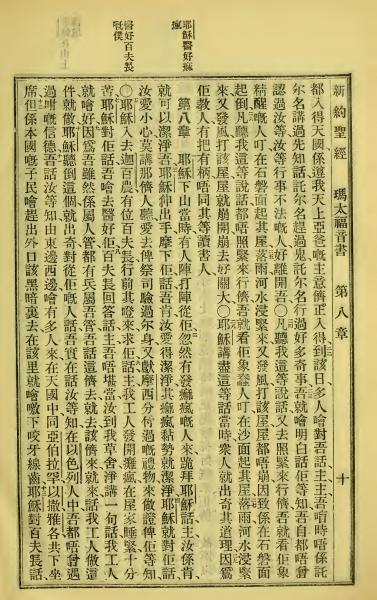 耶穌醫好痲瘋
醫好百夫長嘅僕
新約聖經 瑪太福音書 第八章 十
都入得天國係遵我天上亞爸嘅主意儕正入得到該日多人會對吾話主主吾咱時唔係託
尔名講過先知話託尔名趕過鬼託尔名行過好多奇事吾就會明白話佢等知吾自都唔曾
認過汝等汝等行事不法嘅人好離開吾○凡聽我這等說話又去照緊來行儕吾就看佢象
精醒嘅人叮在石磐面起其屋落雨河水浸緊來又發風打該屋屋都唔崩因致係在石磐面
起倒凡聽我這等說話都唔照緊來行儕吾就看佢象蠢人叮在沙面起其屋落雨河水浸緊
來又發風打該屋屋就崩開崩去好關大○耶穌講盡這等話當時衆人就出奇其道理因爲
佢教人有把有柄唔同其等讀書人
第八章 耶穌下山當時有人陣打陣從佢忽然有發癲瘋嘅人來跪拜耶穌話主汝係肯
就可以潔淨吾耶穌伸出手摩下佢話吾肯汝愛得潔淨其癲瘋黏勢就潔淨耶穌就對佢話
汝愛小心莫講那儕人聽愛去俾祭司驗過尔身又獻摩西分付過嘅禮物來做證俾佢等知
○耶穌入去迦百農有位百夫長行前其嘅來求佢話主我工人發開癱瘋在屋家睡緊十分
苦耶穌對佢話吾會去醫好佢百夫長回答話主吾唔堪當汝到我草舍淨講一句話我工人
就會好因爲吾雖然係屬人管都有兵屬吾管吾話這儕去就去該儕來就來話我工人做這
件就做耶穌聽倒這個就出奇對從佢嘅人話吾實在話汝等知在以色列人中吾都唔曾遇
過咁嘅信德吾話汝等知由東邊西邊會有多人來在天國中同亞伯拉罕以撒雅各共下坐
席但係本國嘅子民會趕出外口該黑暗裏去在該里就會噭下咬牙線齒耶穌對百夫長話